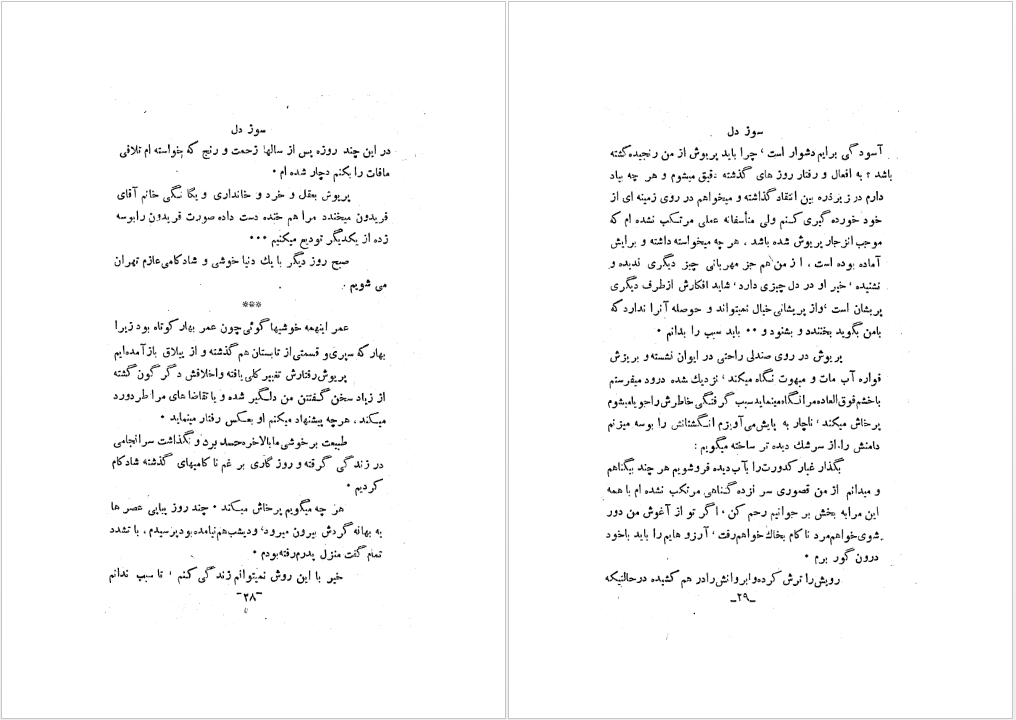 سوز دل
در این چند روزه پس از سالها زحمت و رنج که خواسته ام تلافی
مافات را بکنم دچار شده ام .
پریوش بعقل و خرد و خانداری و یگانگی خانم آقای
فریدون میخندد مرا هم خنده دست داده صورت فریدون را بوسه
زده از یکدیگر تودیع میکنیم ...
صبح روز دیگر با یك دنیا خوشی و شادکامی عازم تهران
می شویم .
***
عمر اینهمه خوشیها گوئی چون عمر بهار کوتاه بود زیرا
بهار که سپری و قسمتی از تابستان هم گذشته و از ییلاق باز آمده ایم
پریوش رفتارش تغییر کلی یافته و اخلاقش دگرگون گشته
از زیاد سخن گفتن من دلگیر شده و یا تقاضا های مرا طرد و رد
میکند ، هرچه پیشنهاد میکنم او بعکس رفتار مینماید .
طبیعت بر خوشی ما بالاخره حسد برد و نگذاشت سرانجامی
در زندگی گرفته و روزگاری بر غم ناکامیهای گذشته شادکام
گردیم .
هر چه میگویم پرخاش میکند . چند روز پیاپی عصر ها
به بهانه گردش بیرون میرود، و دیشب هم نیامده بود پرسیدم ، با تشدد
تمام گفت منزل پدرم رفته بودم .
خیر با این روش نمیتوانم زندگی کنم ، تا سبب ندانم
-۲۸-
سوز دل
آسودگی برایم دشوار است ، چرا باید پریوش از من رنجیده گشته
باشد ، به افعال و رفتار روز های گذشته دقیق میشوم و هر چه بیاد
دارم در زیر ذره بین انتقاد گذاشته و میخواهم در روی زمینه ای از
خود خورده گیری کنم ولی متأسفانه عملی مرتکب نشده ام که
موجب انزجار پریوش شده باشد ، هر چه میخواسته داشته و برایش
آماده بوده است ، از من هم جز مهربانی چیز دیگری ندیده و
نشنیده ، خیر او در دل چیزی دارد، شاید افکارش از طرف دیگری
پریشان است ، واز پریشانی خیال نمیتواند و حوصله آنرا ندارد که
بامن بگوید بخندد و بشنود و .. باید سبب را بدانم .
پریوش در روی صندلی راحتی در ایوان نشسته و بریزش
فواره آب مات و مبهوت نگاه میکند ، نزدیك شده درود میفرستم
با خشم فوق العاده مرا نگاه مینماید سبب گرفتگی خاطرش را جویا میشوم
پرخاش میکند ، ناچار به پایش می آویزم انگشتانش را بوسه میزنم
دامنش را، از سرشك دیده تر ساخته میگویم :
بگذار غبار کدورت را بآب دیده فروشویم هر چند بیگناهم
و میدانم از من قصوری سر نزده گناهی مرتکب نشده ام با همه
این مرا به بخش بر جوانیم رحم کن ، اگر تو از آغوش من دور
شوی خواهم مرد ناکام بخاك خواهم رفت ، آرزو هایم را باید باخود
درون گور برم .
رویش را ترش کرده و ابروانش را در هم کشیده در حالتیکه
-۲۹-